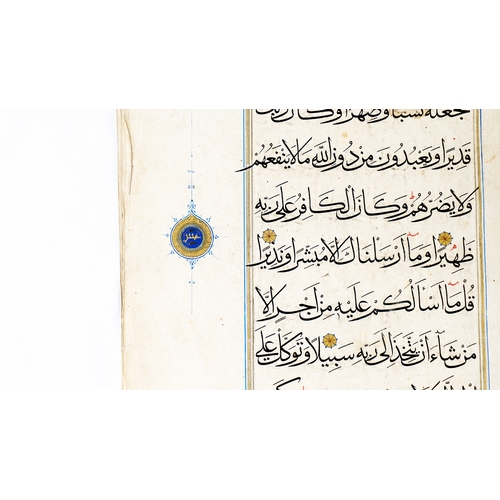 جعله نسبا وصهرا وكان ربك
قديرا ويعبدون من دون الله ما لا ينفعهم
ولا يضرهم وكان الكافر على ربه
ظهيرا وما أرسلناك إلا مبشرا ونذيرا
قل ما أسألكم عليه من أجر إلا
من شاء أن يتخذ إلى ربه سبيلا وتوكل على
عشر